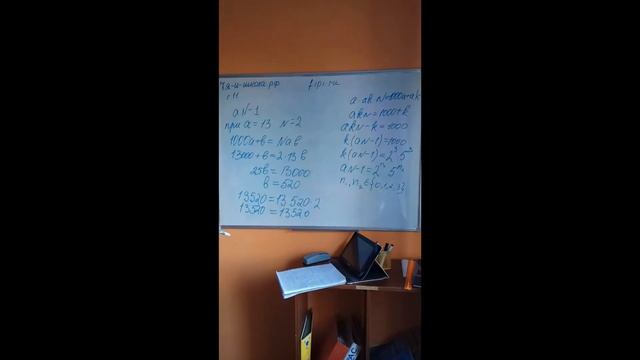 fipi.ru
г.11
aN-1
при a=13 N=2
1000a+b=Nab
13000+b=2·13b
25b=13000
b=520
13520=13·520·2
13520=13520
a·ak·N=1000a+ak
akN=1000+k
akN-k=1000
k(aN-1)=1000
k(aN-1)=2³·5³
aN-1=2ⁿ¹·5ⁿ²
n₁,n₂∈{0,1,2,3}